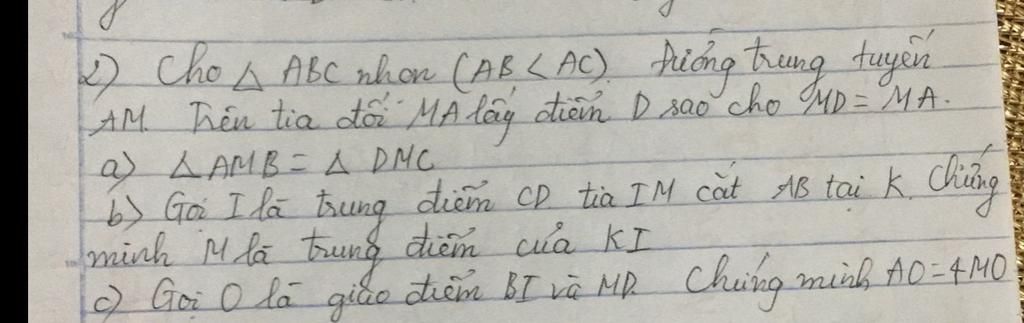 2) Cho △ ABC nhọn (AB < AC). Đường trung tuyến
AM. Trên tia đối MA lấy điểm D sao cho MD = MA.
a) △ AMB = △ DMC
b) Gọi I là trung điểm CD. tia IM cắt AB tại K. Chứng
minh M là trung điểm của KI
c) Gọi O là giao điểm BI và MD. Chứng minh AO = 4MO